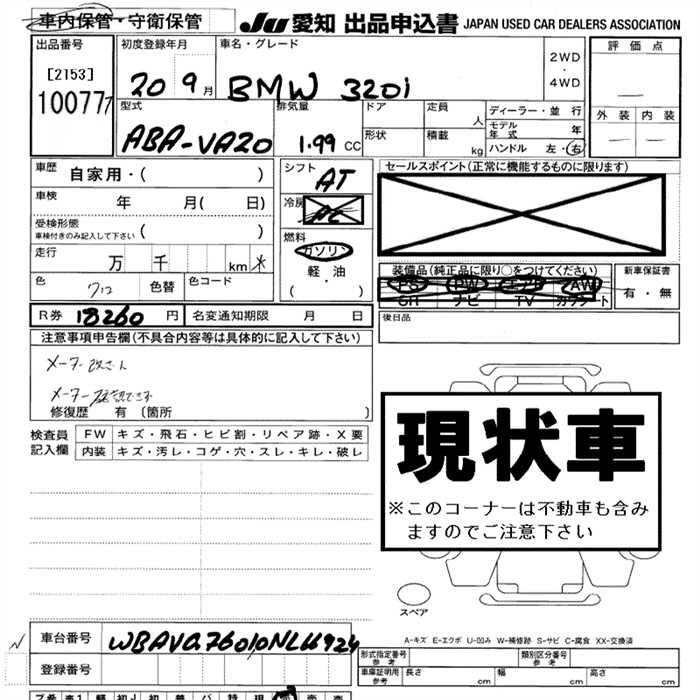 車内保管・守衛保管
JU 愛知 出品申込書 JAPAN USED CAR DEALERS ASSOCIATION
出品番号
[2153]
10077
初度登録年月
20 9月
車名・グレード
BMW 320i
2WD
・
4WD
評価点
外装 内装
型式
ABA-VA20
排気量
1.99 CC
ドア
形状
定員 人
積載 kg
ディーラー・並行
モデル年式 年
ハンドル 左・右
車歴 自家用・( )
車検 年 月( 日)
受検形態
車検付きのみ記入して下さい ( )
走行 万 千 km
色 クロ 色替 色コード
シフト AT
冷房 AC
燃料
ガソリン
軽・油
( ・ )
セールスポイント(正常に機能するものに限ります)
装備品(純正品に限り○をつけてください)
PS PW エアB AW
SR ナビ TV カワシート
新車保証書
有・無
後日品
R券 18260 円 名変通知期限 月 日
注意事項申告欄(不具合内容等は具体的に記入して下さい)
メーター改ざん
修復歴 有〔箇所 〕
検査員記入欄
FW キズ・飛石・ヒビ割・リペア跡・X要
内装 キズ・汚レ・コゲ・穴・スレ・キレ・破レ
現状車
※このコーナーは不動車も含みますのでご注意下さい
スペア
A-キズ E-エクボ U-凹み W-補修跡 S-サビ C-腐食 XX-交換済
車台番号
登録番号
形式指定番号 参考
類別区分番号 参考
車庫証明用 参考 長さ cm 幅 cm 高さ cm